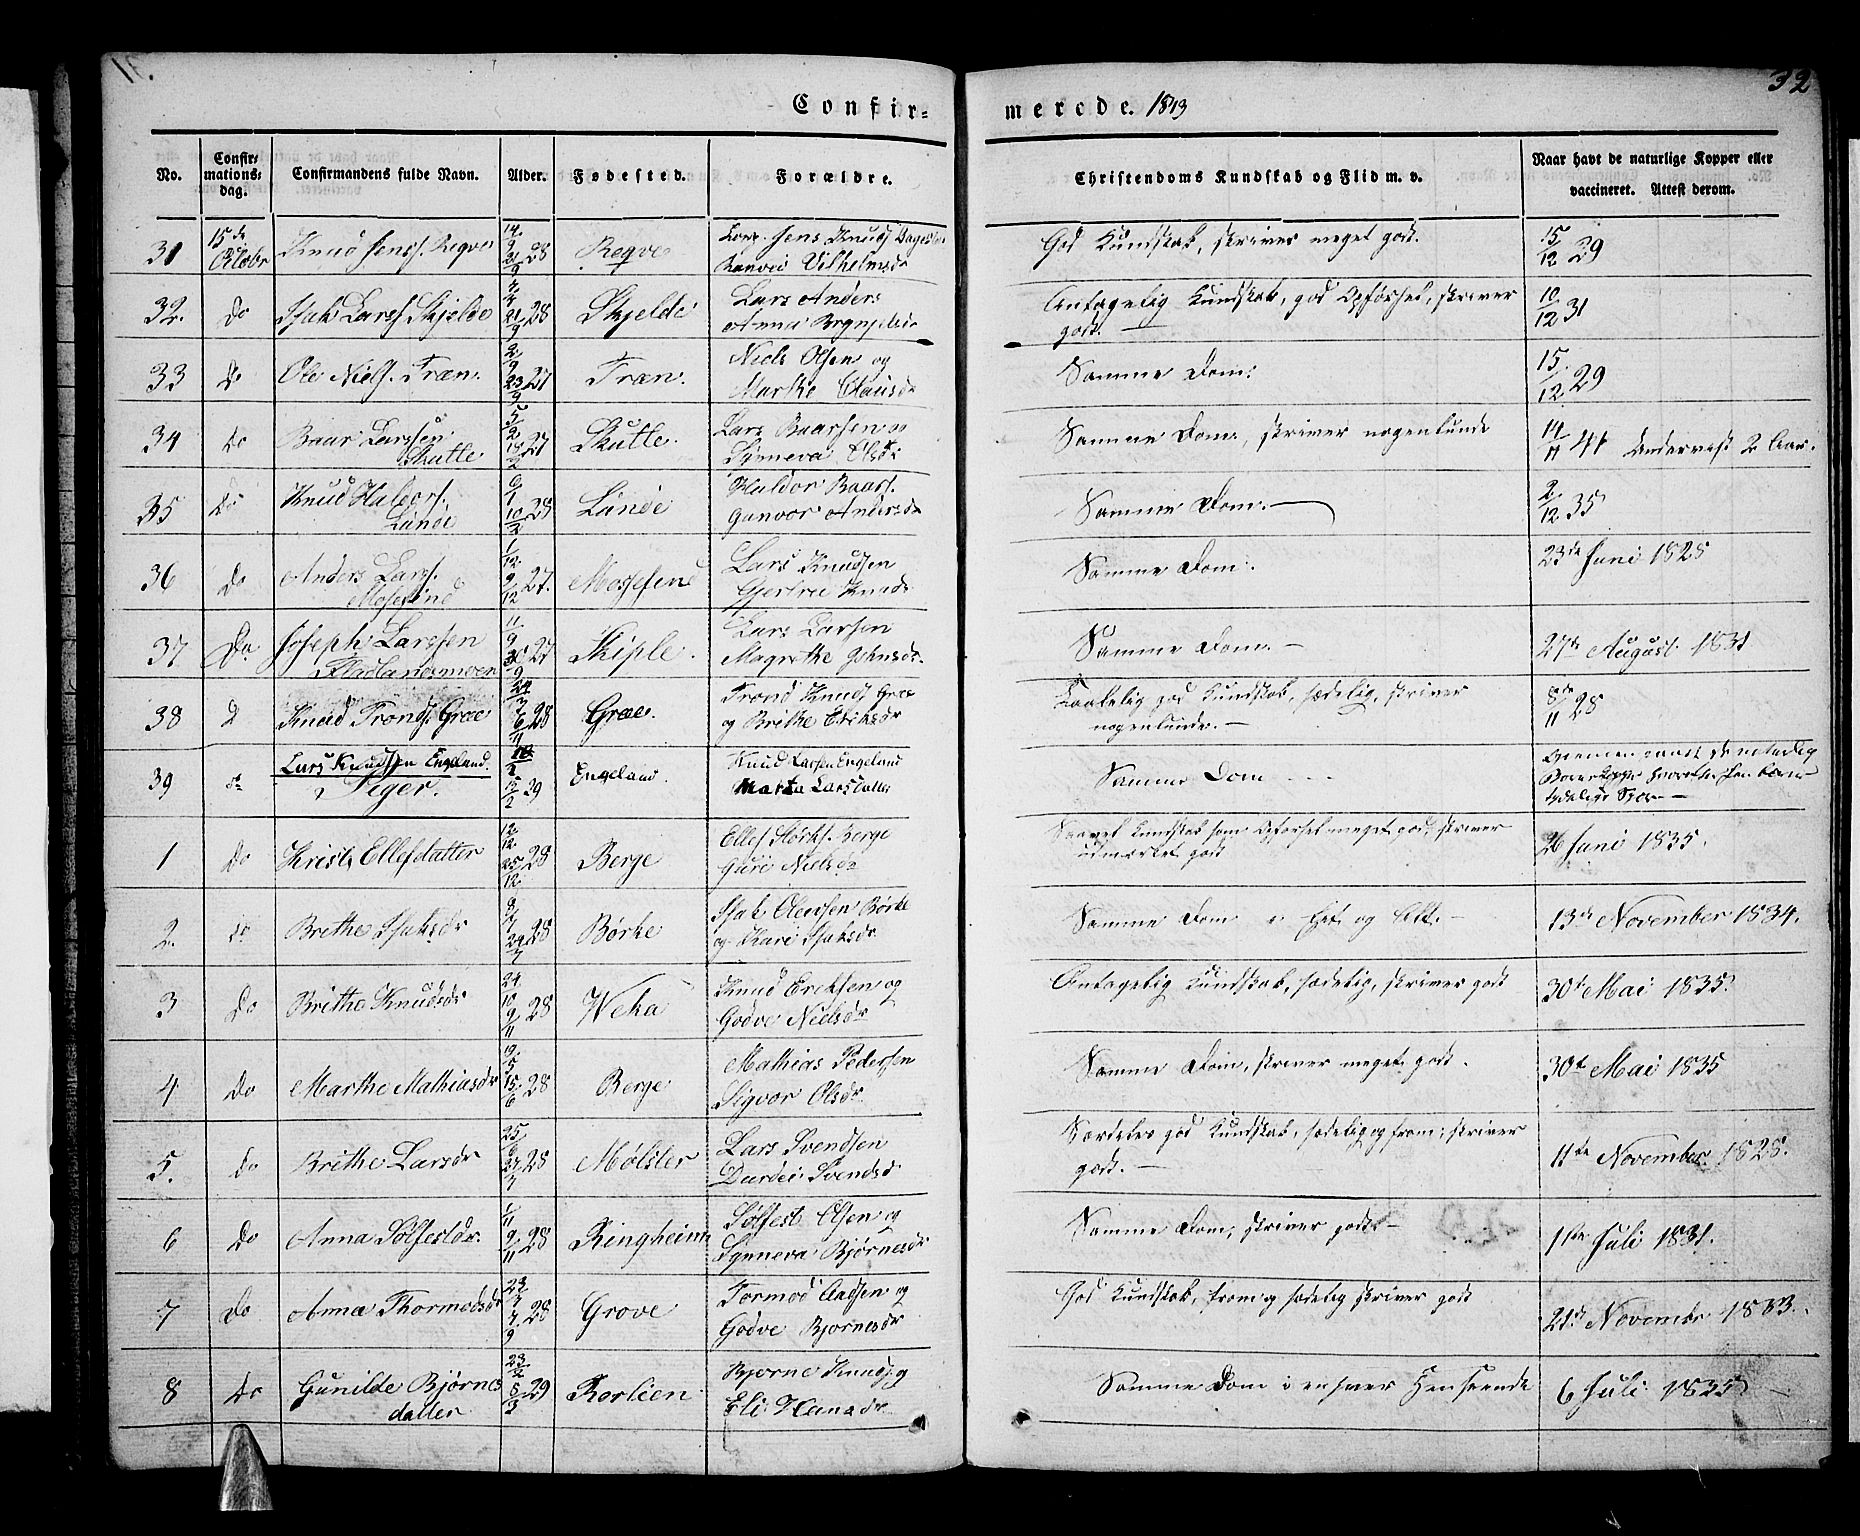 32
Confir=
merede. 1843
No.
Confir=
mations=
dag.
Confirmandens fulde Navn.
Alder.
Fødested.
Forældre.
Christendoms Kundskab og Flid m. v.
Naar havt de naturlige Kopper eller
vaccineret. Attest derom.
31 15de Octobr Knud Jens. Reqve 28 Reqve Jens Knuds
Ranvei Vilhelmsdr God Kundskab, skriver meget godt. 15/12 29
32. Do Isak Lars. Skjelde 21/9 28 Skjelde Lars Anders
Anna Brynjelsdr Antagelig Kundskab, god Opførsel, skriver
godt. — 10/12 31
33 Do Ole Niels. Træn. 2/9 23/9 27 Træn. Niels Olsen og
Marthe Clausdr Samme Dom: 15/12 29
34 do Baar Larssen
Skutle 5/2 27 Skutle. Lars Baarsen og
Synneva Olsdr Samme Dom, skriver nogenlunde 14/11 41
35 Do Knud Haldors.
Lunde 6/1 28 Lunde Haldor Baars.
Gunvor Andersdr Samme Dom. 2/12 35
36 Do Anders Lars.
Mosefind 1/12 9/12 27. Mossefind Lars Knudsen
Gjertrud Knudsdr Samme Dom. 23de Juni 1828
37 Do Joseph Larssen
Fladlandsmoen 11/9 27 Skiple. Lars Larsen
Magrethe Johnsdr. Samme Dom. — 27de August 1831
38 Knud Tronds. Græe 28 Græe. Trond Knuds Græe
og Brithe Eriksdr Taalelig god Kundskab, sædelig, skriver
nogenlunde. — 8de/11 28
39 do Lars Knudsen Engeland.
Seger. 12/2 29 Engeland. Knud Larsen Engeland
Marta Larsdatter Samme Dom
tydelige Spor —
1 Do Kristi Ellefdatter 12/12 25/12 28 Berge Ellef Størks. Berge
Guri Nielsdr Saavel Kundskab som Opførsel meget god, skriver
udmærket godt 26 Juni 1835.
2. do Brithe Isaksdr 8/7 24/7 28 Børke Isak Olevsen Børke
og Kari Isaksdr Samme Dom i Et og Alt. — 13de November 1834.
3 Do Brithe Knudsdr 24/10 9/11 28 Weka Knud Ereksen og
Godve Nielsdr Antagelig Kundskab, sædelig, skriver godt 30te Mai 1835.
4 Do Marthe Mathiasdr 19/5 15/6 28 Berge Mathias Pedersen
Sigvor Olsdr. Samme Dom, skriver meget godt. 30te Mai 1835
5. Do Brithe Larsdr 25/6 27/7 28 Mølster Lars Svendsen
Durdei Svendsdr Særdeles god Kundskab, sædelig og from; skriver
godt. — 11te November 1828.
6 Do Anna Sølfestdr. 1/11 9/11 28 Ringheim Sølfest Olsen og
Synneva Bjørnesdr Samme Dom, skriver godt — 1ste Juli 1831.
7 Do Anna Thormodsdr 28 Grove Tormod Andsen og
Godve Bjørnesdr God Kundskab, from og sædelig skriver godt 21de Novembr 1833.
8 Do Gunilde Bjørnes
datter 23/2 8/3 29 Rorlien Bjørne Knuds. og
Eli Hansdr. Samme Dom i enhver Henseende 6 Juli 1835